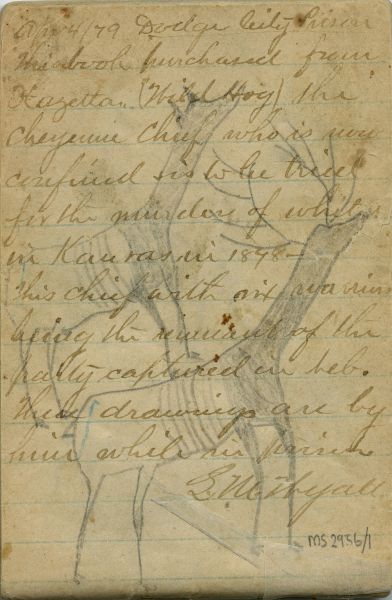 Apr 4/79 Dodge City Prison
This book purchased from
(Wild Hog) the
Cheyenne Chief who is now
confined is to be tried
for the murders of whites
in Kansas in 1878 -
This chief with six warriors
being the remnant of the
party captured in Neb.
These drawings are by
him while in prison
MS 2956/1